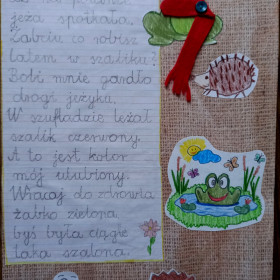 jeża spotkała.
Żabciu co robisz
latem w szaliku?
Boli mnie gardło
drogi jeżyku.
W szufladzie leżał
szalik czerwony.
A to jest kolor
mój ulubiony.
Wracaj do zdrowia
żabko zielona
byś była ciągle
taka szalona.